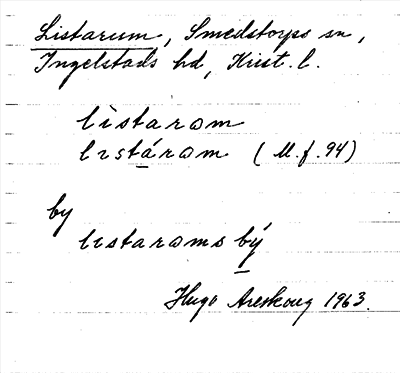 Listarum, Smedstorps sn,
Ingelstads hd, Krist. l.
lìstarom
lıstárom (M.f. 94)
by
lıstaroms bý
Hugo Areskoug 1963.